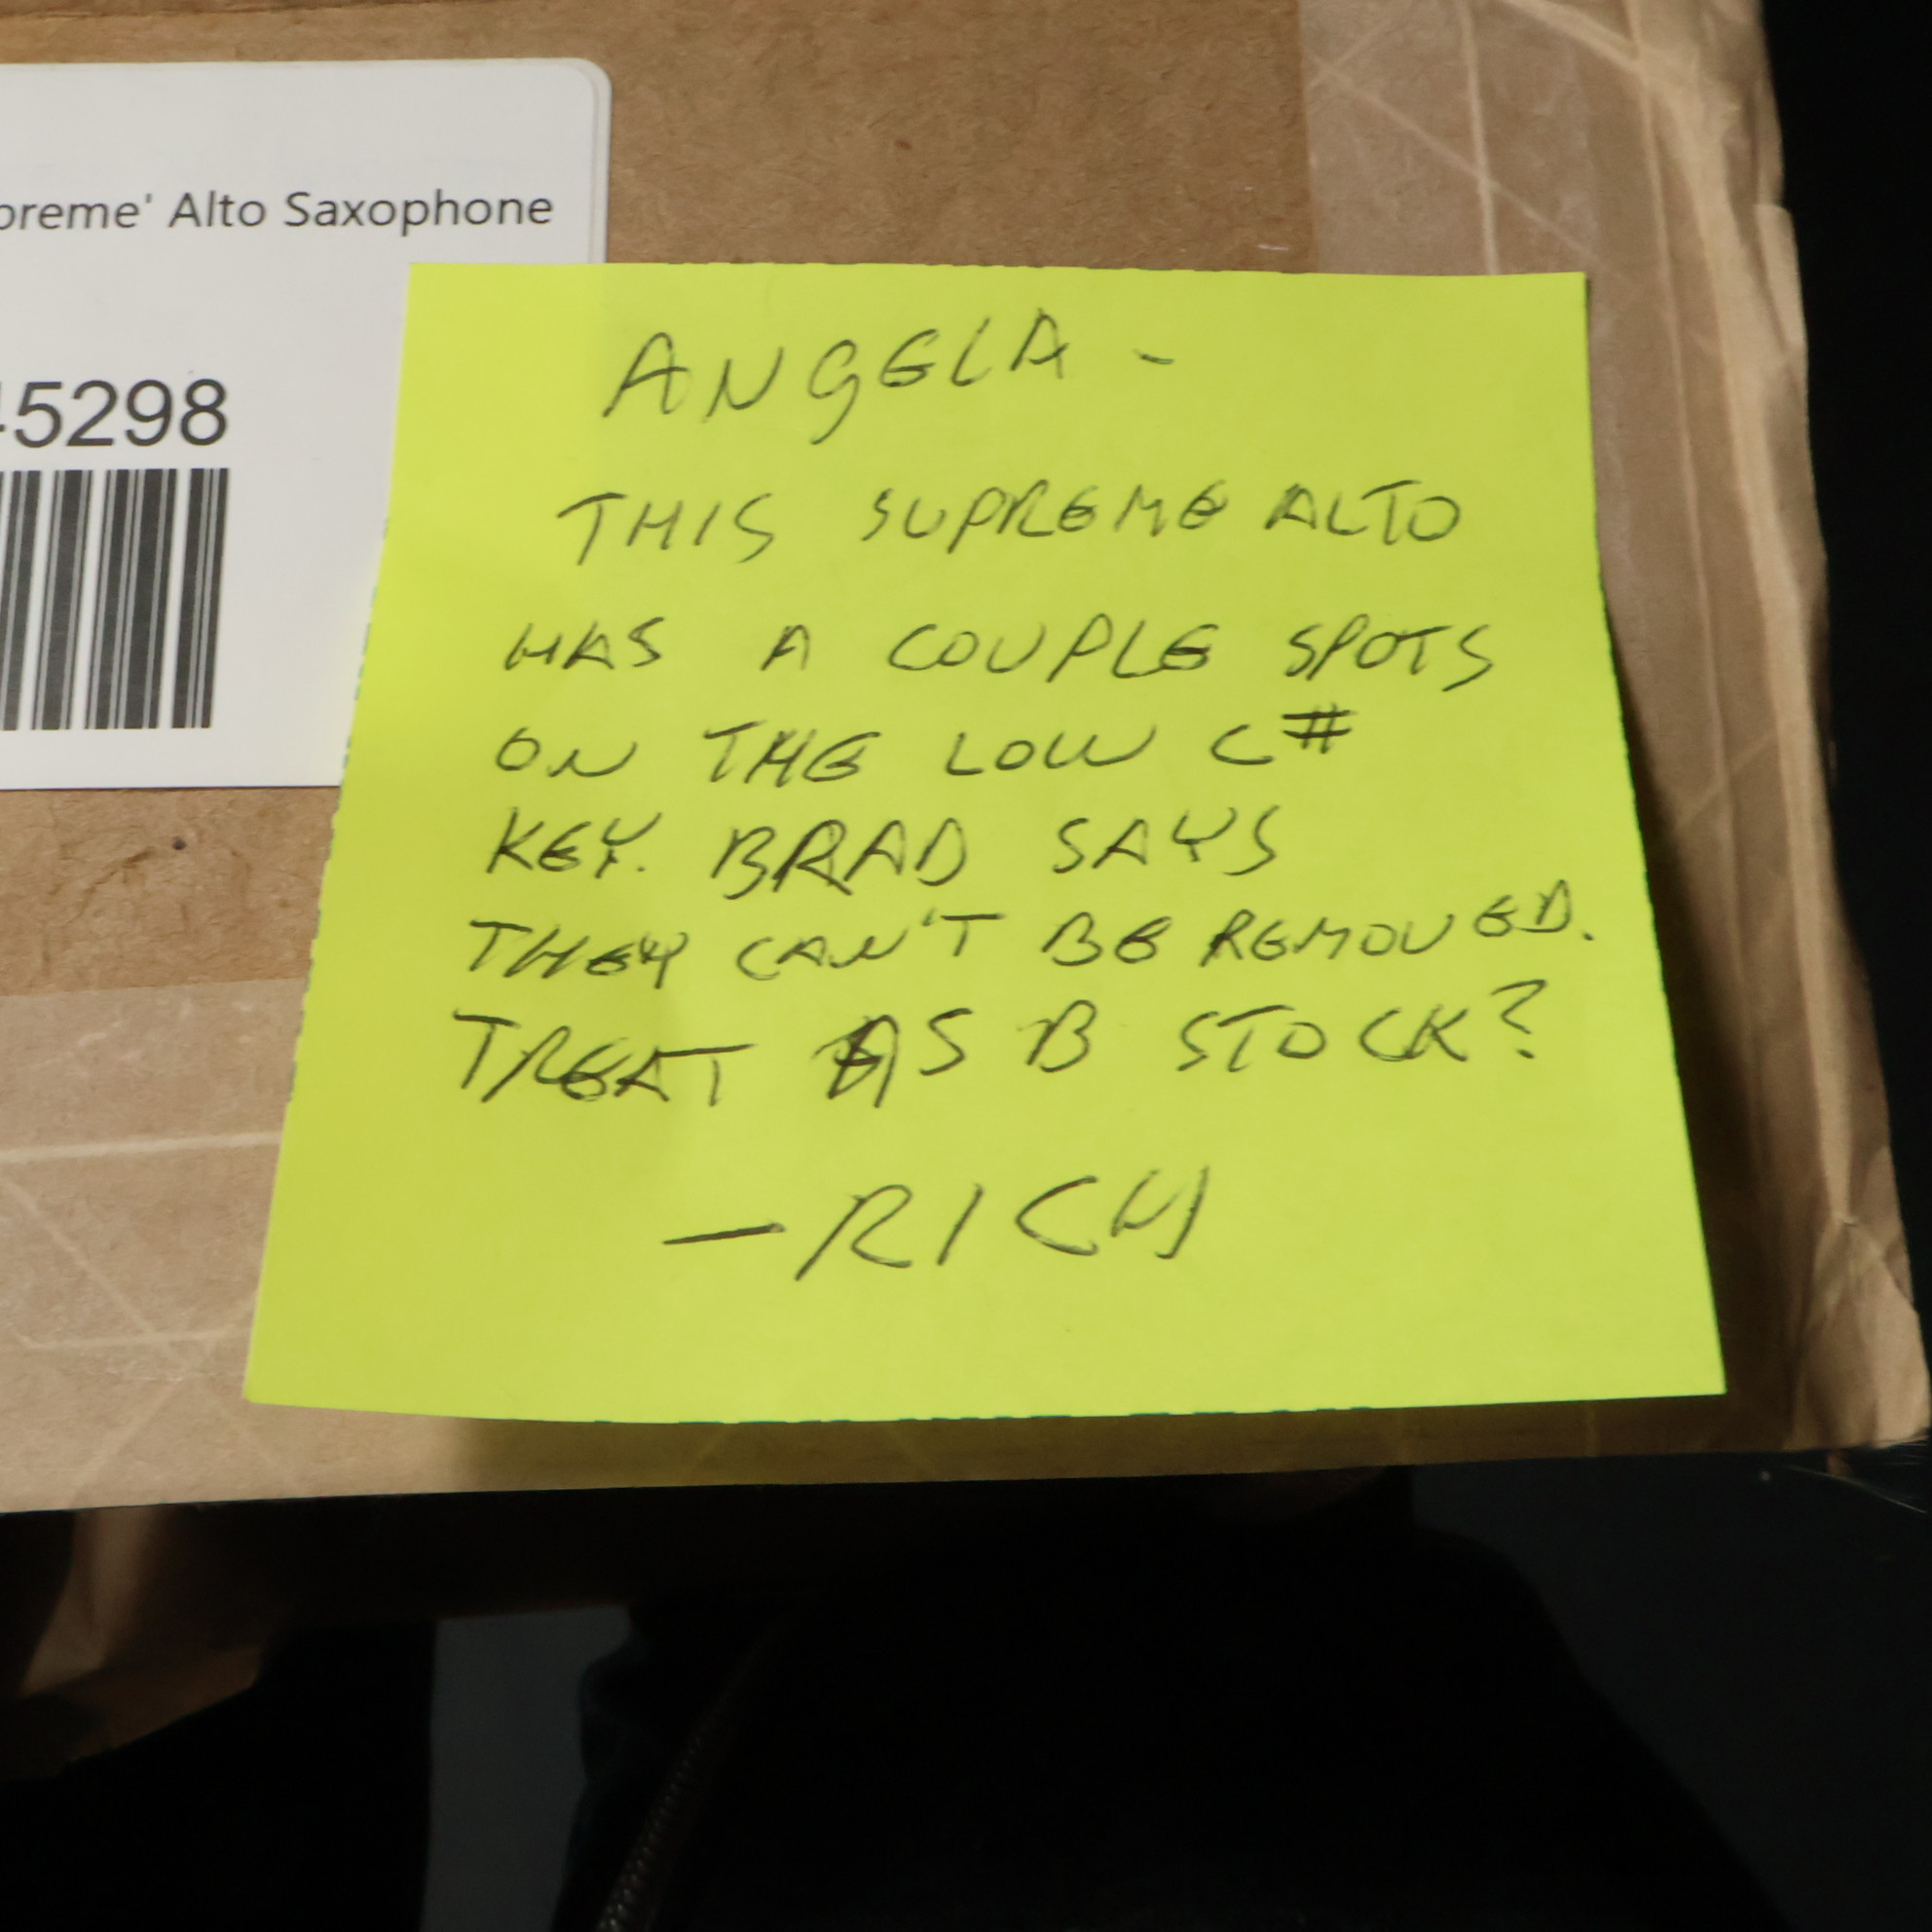 preme' Alto Saxophone
45298
ANGELA -
THIS SUPREME ALTO
HAS A COUPLE SPOTS
ON THE LOW C#
KEY. BRAD SAYS
THEY CAN'T BE REMOVED.
TREAT AS B STOCK?
— RICH